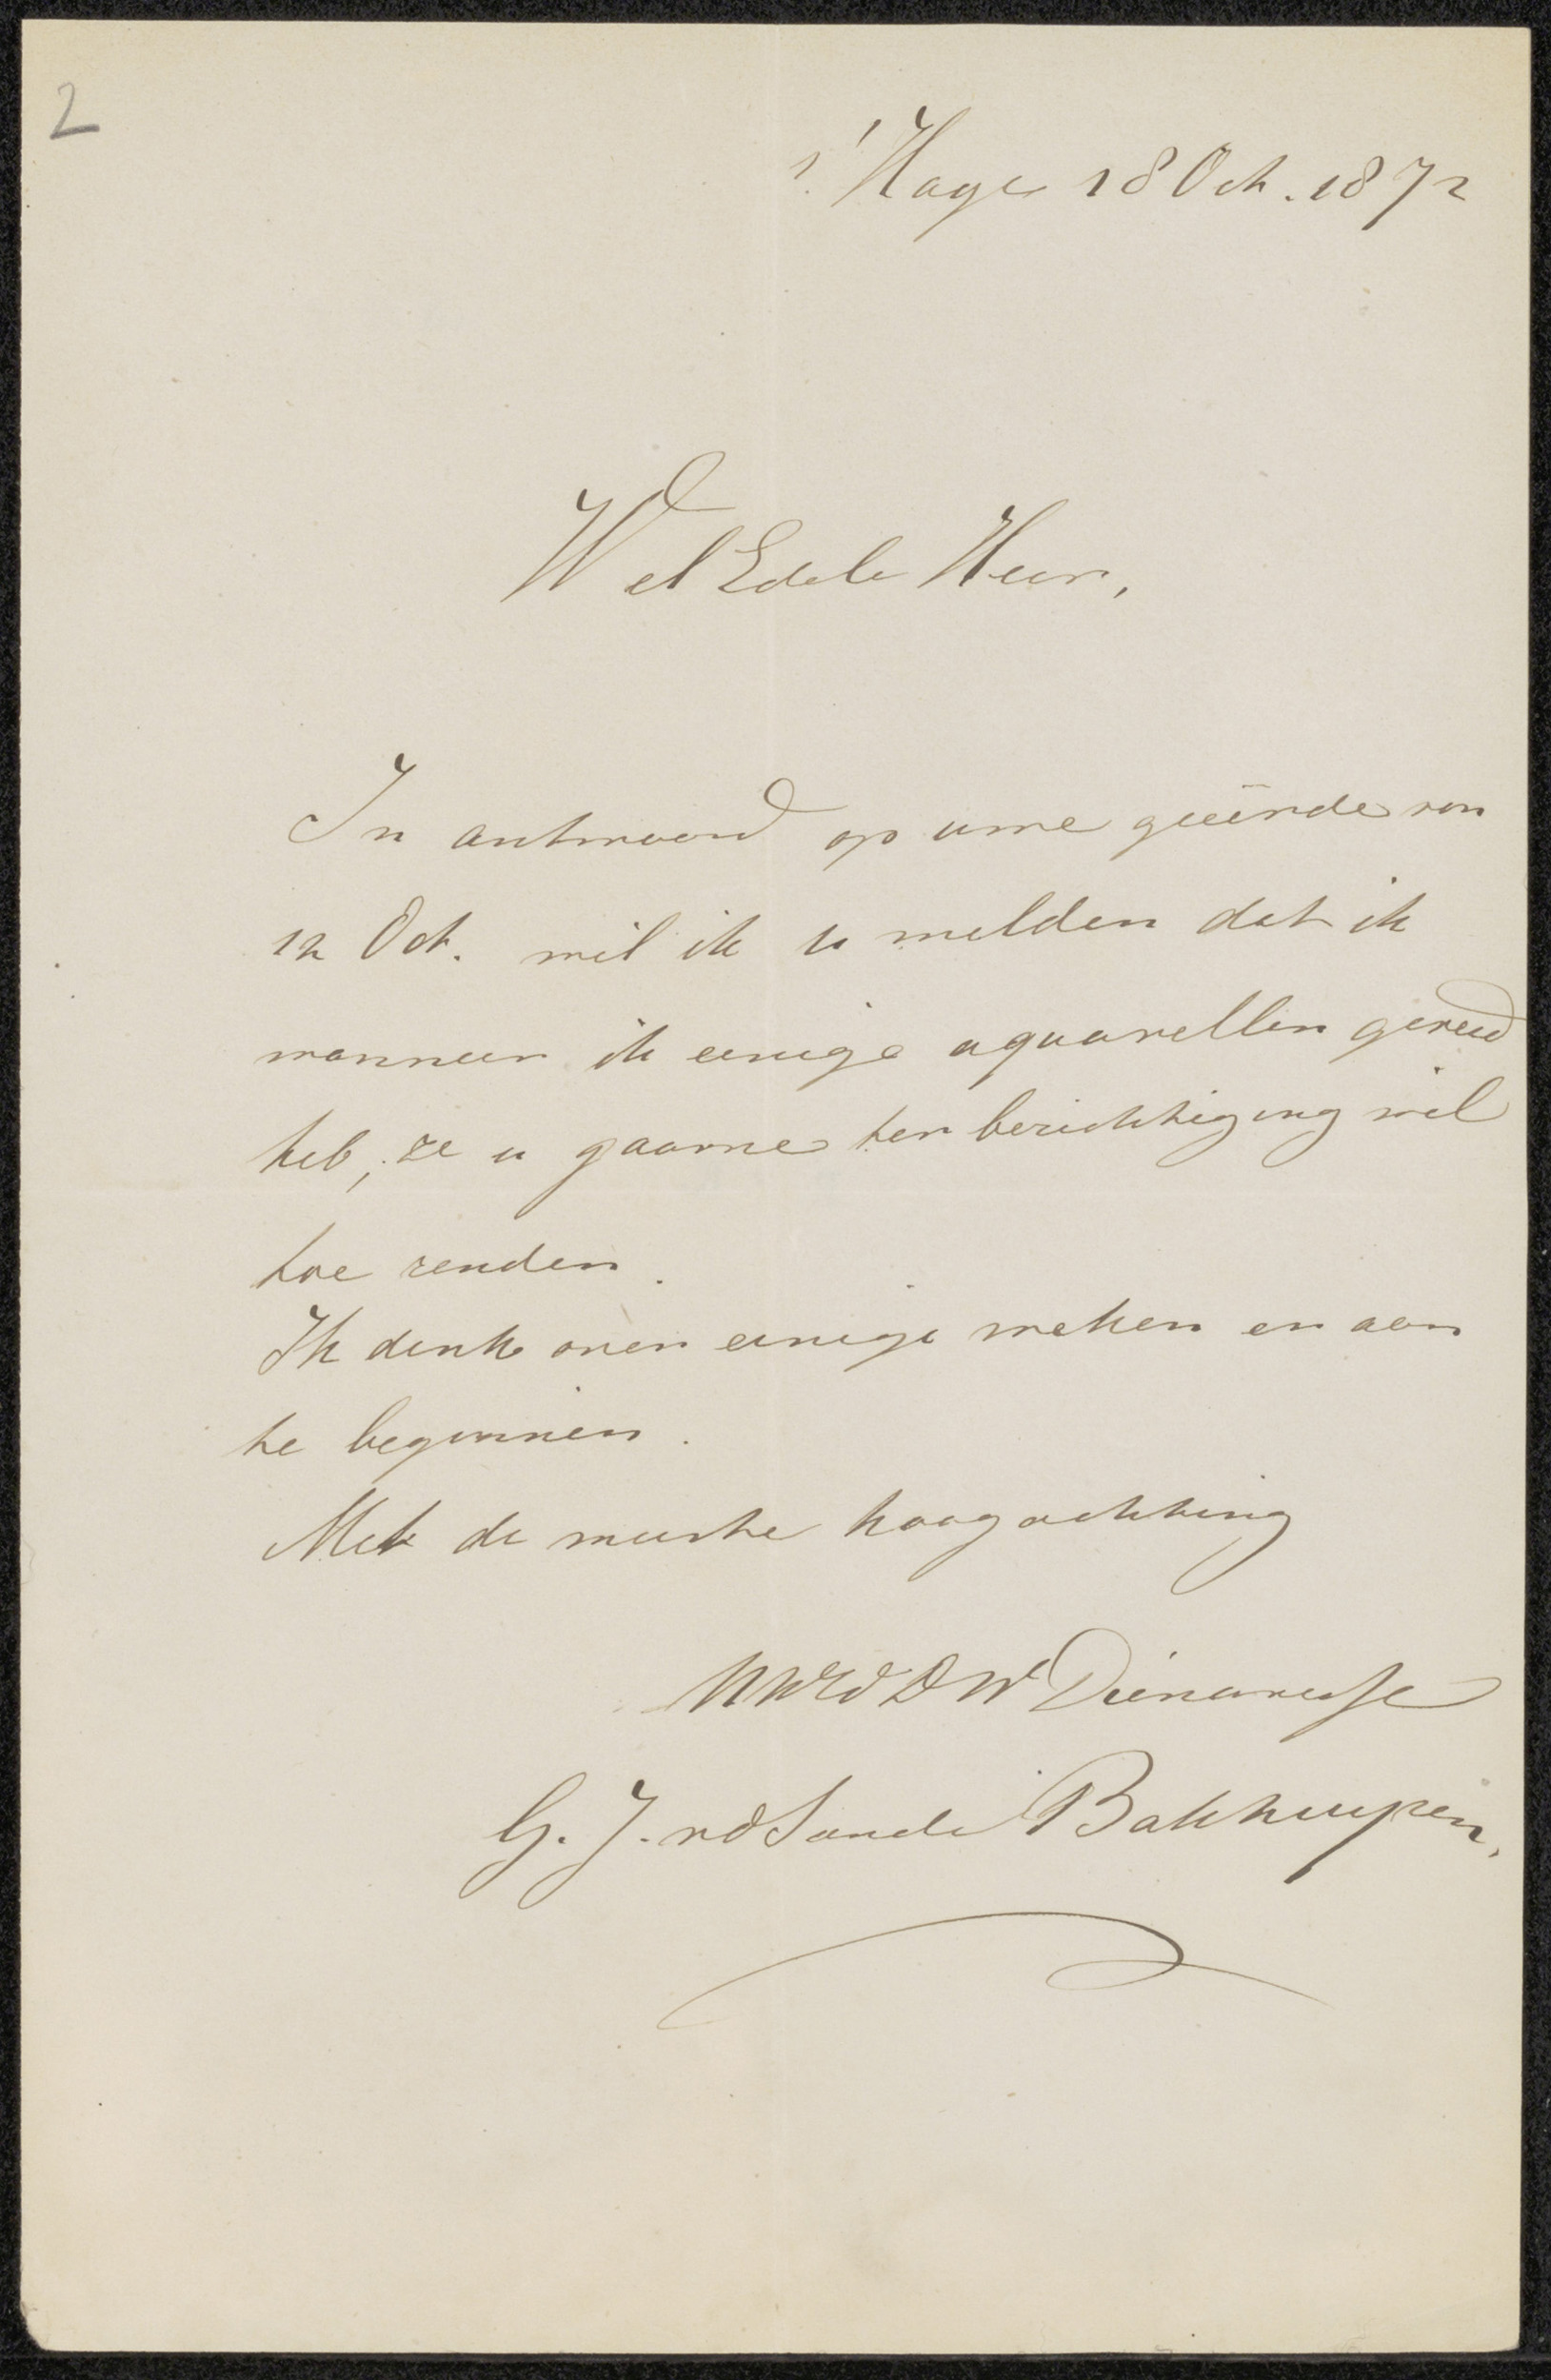 2
s' Hage 18 Oct. 1872
Wel Edele Heer,
In antwoord op uwe geëerde van
12 Oct. wil ik u melden dat ik
wanneer ik eenige aquarellen gereed
heb, ze u gaarne ter bezichtiging wil
toe zenden.
Ik denk over eenige weken er aan
te beginnen.
Met de meeste hoogachting
UWEd DW Dienaresse
G. J. vd Sande Bakhuyzen,